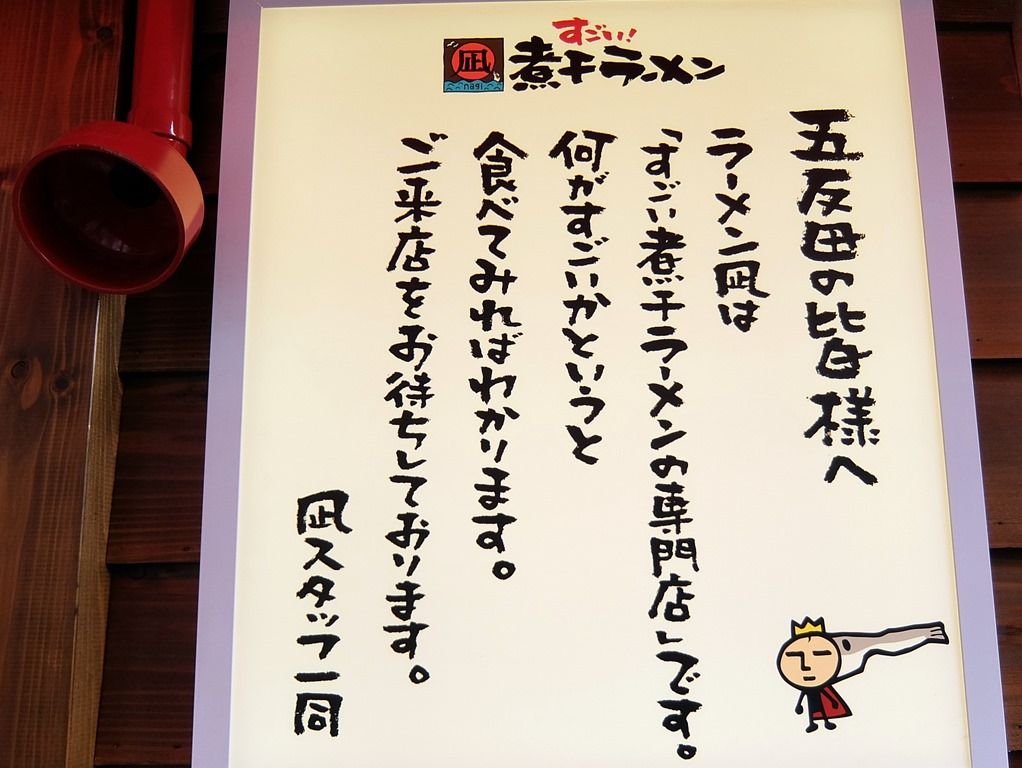 すごい!
凪 煮干ラーメン
nagi
五反田の皆様へ
ラーメン凪は
「すごい煮干ラーメンの専門店」です。
何がすごいかというと
食べてみればわかります。
ご来店をお待ちしております。
凪スタッフ一同